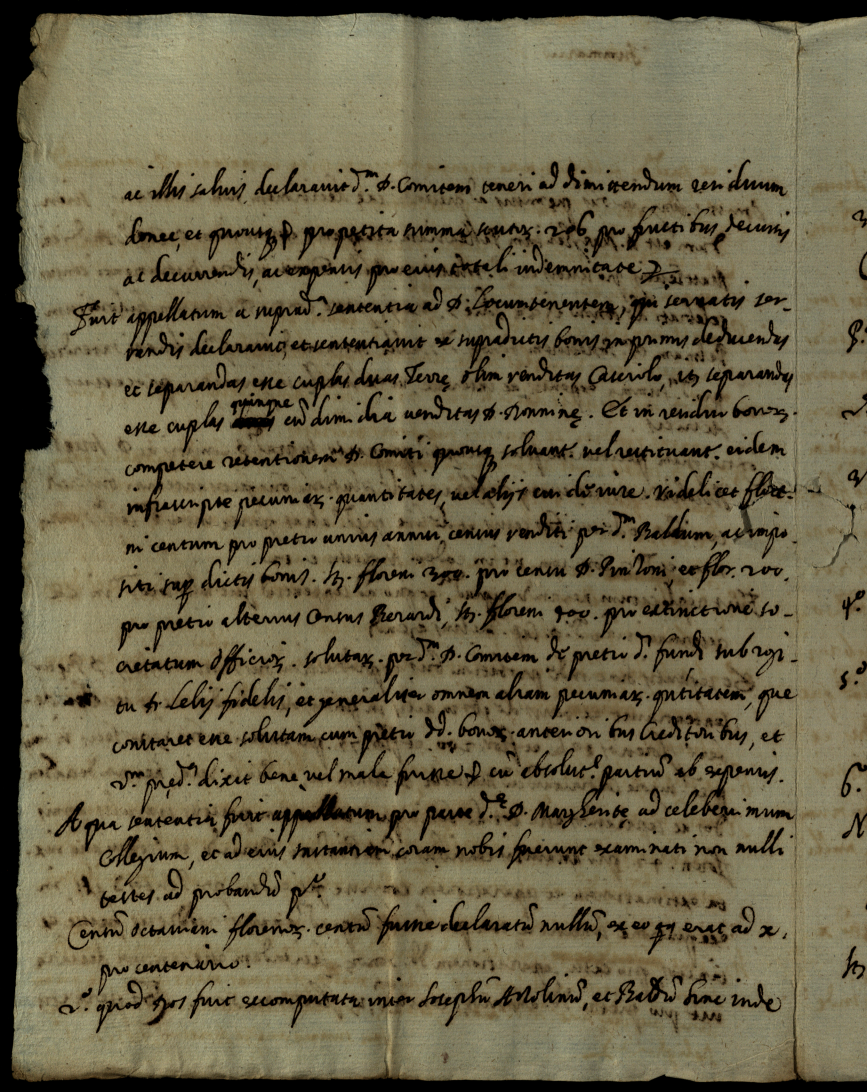 ac illis salvis declaravit d.m D. Comitem teneri ad dimittendum residuum
donec, et quousq; pro petita summa scutor. 206 pro fructibus decursis
ac decurrendis, ac expensis pro eius totali indemnitate
Fuit appellatum a suprad.a sententia ad D. Locumtenentem, qui servatis ser-
vandis declaravit, et sententiavit ex supradictis bonis in primis deducendas
et separandas esse cuplas duas Terrę olim venditas Caserolo, itē separandas
esse cuplas quinque cū dimidia venditas D. . Et in residuo bonor.
competere retentionem D. Comiti quousq; solvant. vel restituant. eidem
infrascriptę pecuniar. quantitates, vel alijs cui de iure. Videlicet flore-
ni centum pro pretio unius annui census venditi per d.m Baldum, ac impo-
siti sup dictis bonis. Itē floreni pro censu D. , et flor. 200.
pro pretio alterius Census Berardi, Itē floreni pro extinctione so-
cietatum officior. solutar. per d.m D. Comitem de pretio d.i fundi sub rogi-
tu D. Lelij fidelis, et generaliter omnem aliam pecuniar. qutitatem, que
constaret esse solutam cum pretio dd. bonor. anterioribus Creditoribus, et
pred.m dixit bene vel male fuisse cū absolut.e partiū ab expensis.
A qua sententia fuit appellatum pro parte d.ę D. Margheritę ad celeberimum
Collegium, et ad eius instantiam coram nobis fuerunt examinati non nulli
testes ad probandū p.o
Censū Octaviani florenor. centū fuisse declaratū nullū, ex eo q; erat ad x.
pro centenario.
2.o quod hos fuit excomputata inter Iosephū , et Baldū hinc inde